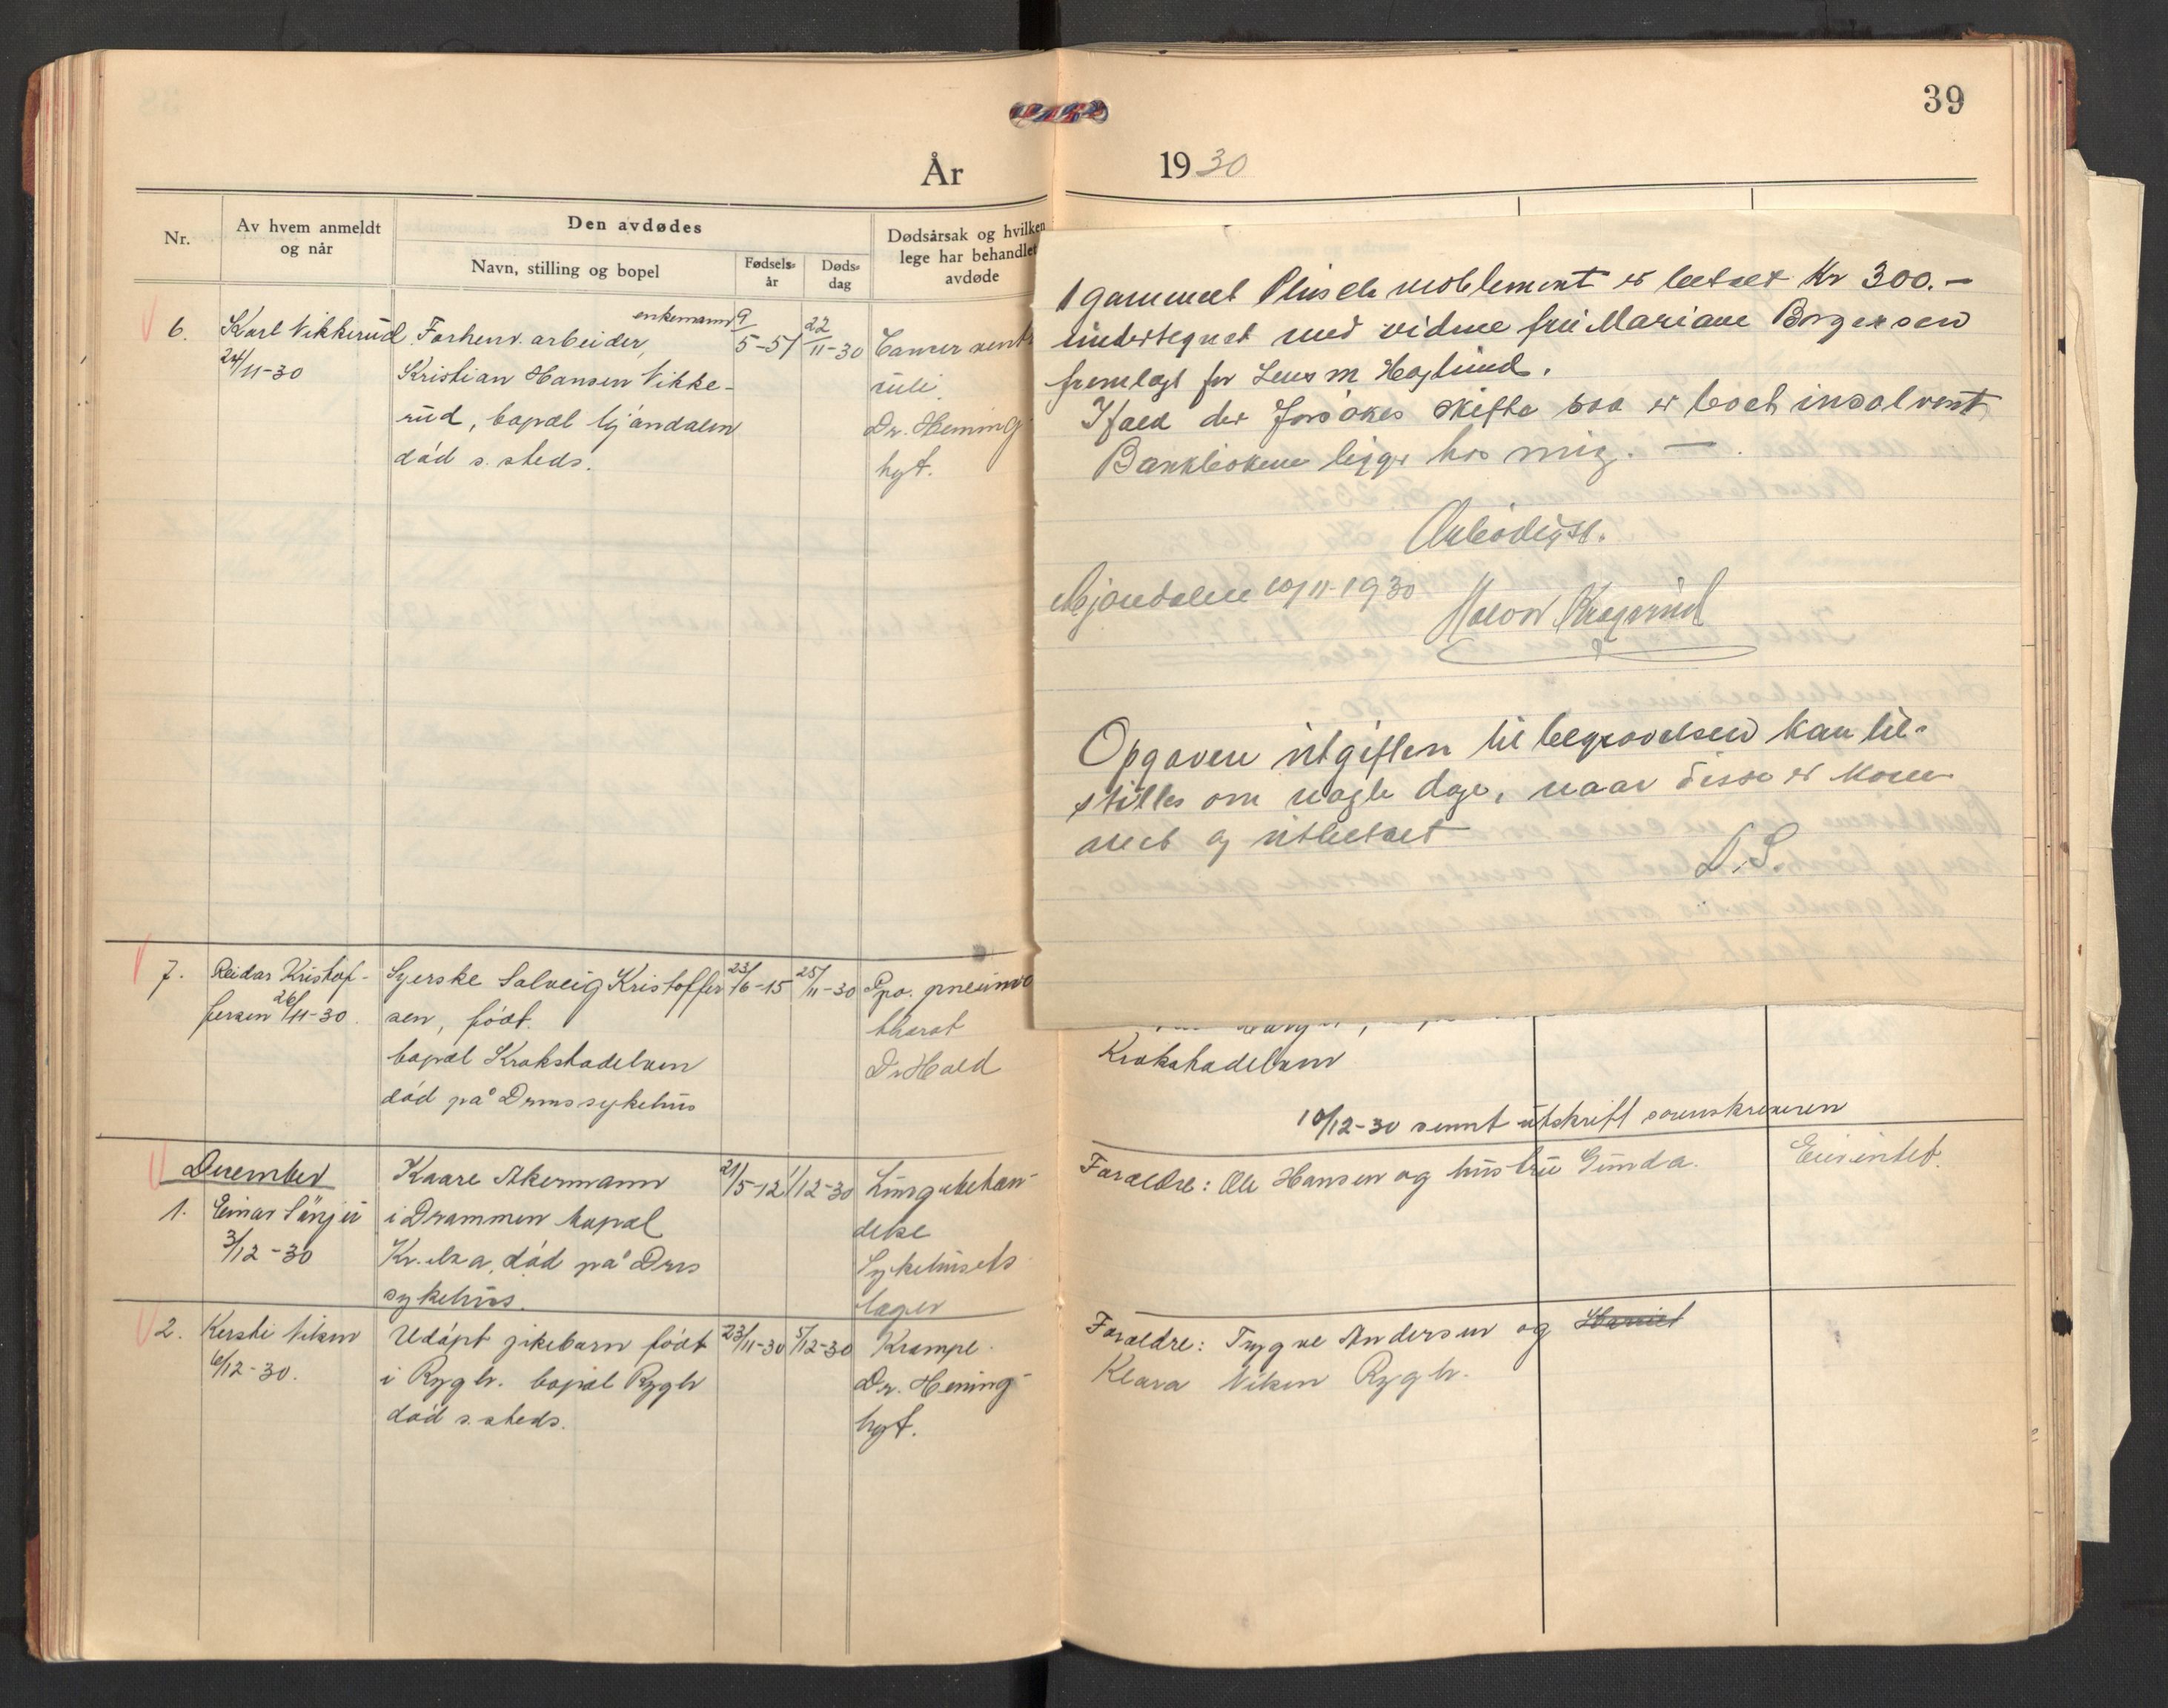 39
År 1930
Nr.
Av hvem anmeldt
og når
Den avdødes
Navn, stilling og bopel
Fødsels-
år
Døds-
dag
Dødsårsak og hvilken
lege har behandlet
avdøde
6.
Karl Vikkerud
24/11-30
enkemann
Forhenv. arbeider,
Kristian Hansen Vikke-
rud, bopæl Mjøndalen
død s. steds.
9/5-57
22/11-30
Cancer
Dr. Heming
hyt.
7.
Reidar Kristof-
fersen 26/11-30
Syerske Solveig Kristoffer
sen, født.
bopæl Krokstadelven
død på Drms sykehus
23/6-15
25/11-30
Dr Hald
December
1.
Einar
3/12-30
Kaare Akermann
i Drammen bopæl
død på Drs
sykehus.
21/5-12
1/12-30
Sykehusets
læger
2.
Kersti Viken
6/12-30.
Udøpt pikebarn født
i Rygh. bopæl Rygh
død s. steds.
23/11-30
5/12-30
Krampe.
Dr. Heming-
hyt.
1 gammelt Plusch møblement er betalt Kr 300.-
undertegnet med vidne fru Mariane Borgersen
fremlagt for Lensm Haglund.
Ifald der forsøkes skifte saa er boet insolvent
Bankbøkene ligger hos mig. —
Ærbødigst.
Mjøndalen 29/11-1930
Opgaven utgiften til begravelsen kan til-
stilles om nogle dage, naar disse er kom
met og utbetalt
D.S.
Krokstadelven
10/12-30 sennt utskrift sorenskriveren
Forældre: Ole Hansen og hustru Gunda.
Eier intet.
Forældre: Trygve Andersen og Harriet
Klara Viken Rygh.